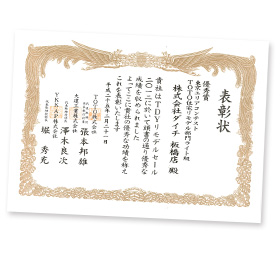 表彰状
優秀賞
東京エリアコンテスト
TOTO住宅リモデル部門ライト級
株式会社ダイチ 板橋店 殿
貴社はTDYリモデルセール
二〇一三において頭書の通り優秀な
成績を収められました
よってここに貴社の優秀な功績を称え
これを表彰いたします
平成二十五年三月二十一日
TOTO株式会社
張本邦雄
大建工業株式会社
澤木良次
YKK AP株式会社
堀 秀充